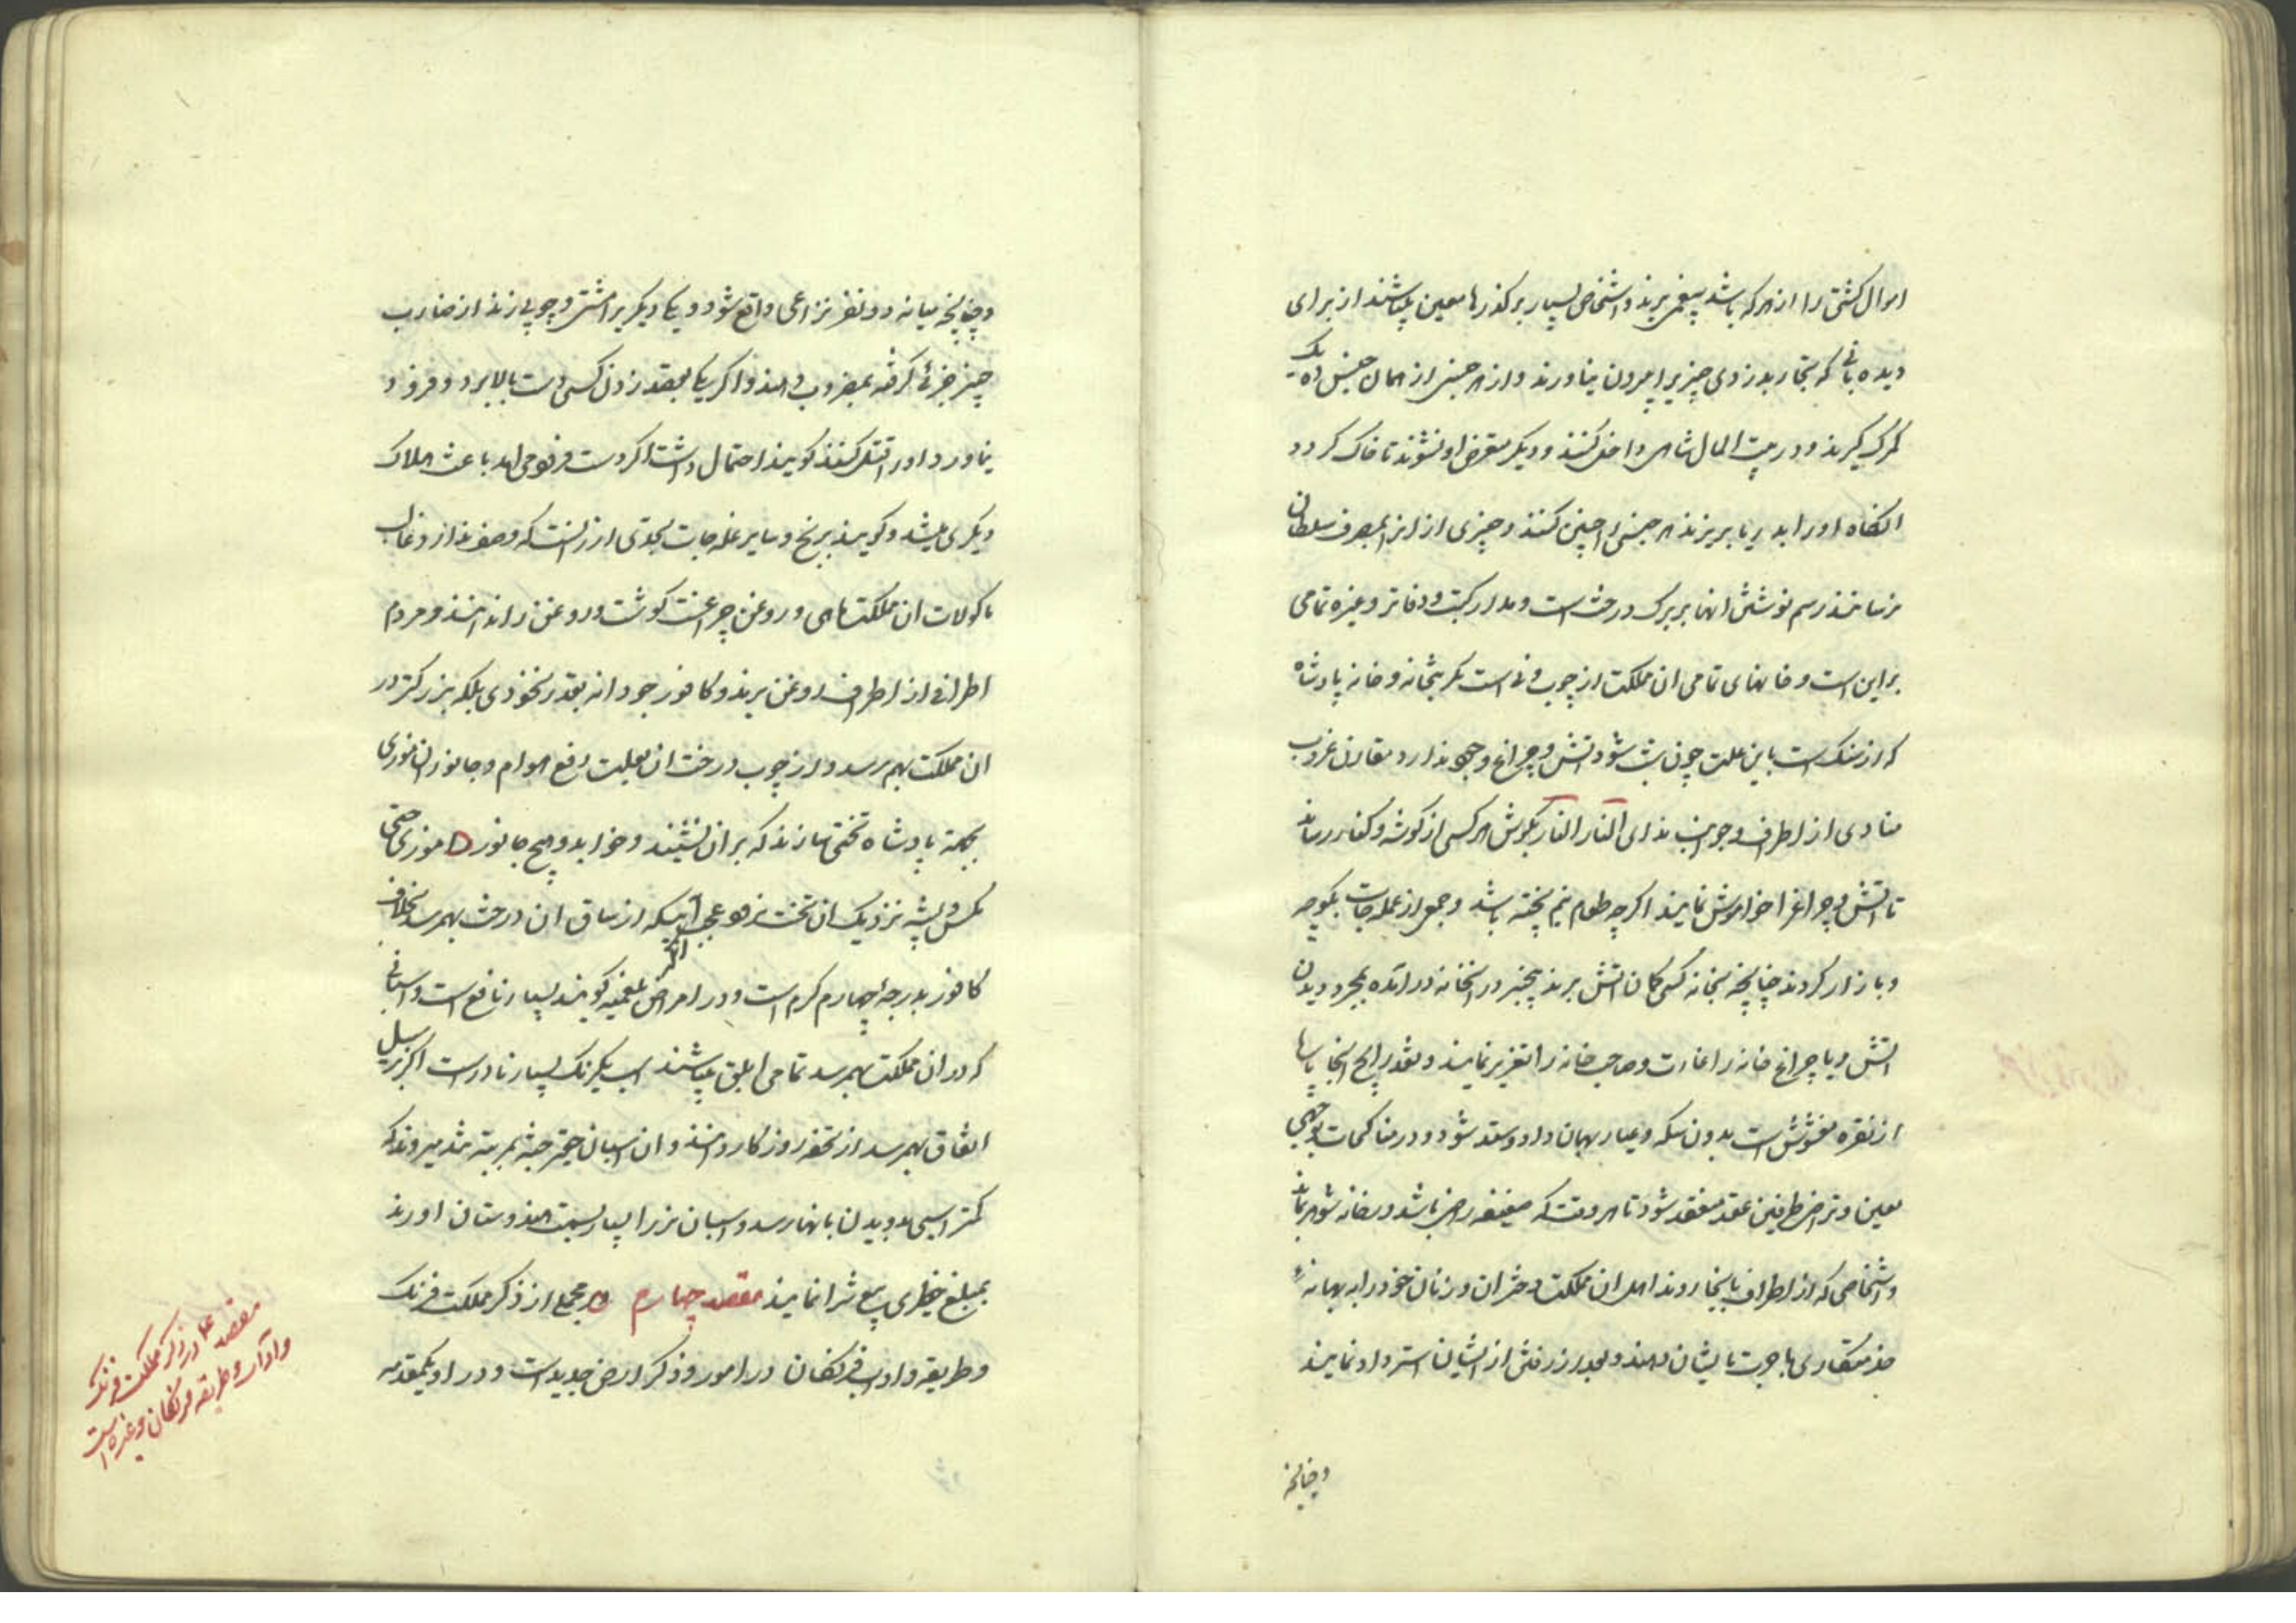 اموال کشتی را از هر که باشد بیغمی برند و اشخاص بسیار بر گذرها معین میباشند از برای
دیده بانی که تجار بدزدی چیزیرا بیرون نیاورند و از هر جنس از همان جنس ده یک
گمرک گیرند و در بیت المال شاهی داخل کنند و دیگر متعرض او نشوند تا خاک گردد
انگاه او را بدریا بریزند هر جنس را چنین کنند و چیزی از انرا بمصرف سلطان
نرسانند رسم نوشتن انها بر برک درخت است و مدار کتب و دفاتر و غیره تمامی
بر این است و خانهای تمامی ان مملکت از چوب و نی است مگر بتخانه و خانه پادشاه
که از سنگ است باین علت چون شب شود اتش و چراغ وجهی ندارد مقارن غروب
منادی از اطراف و جوانب ندای النار النار بگوش هر کسی از گوشه و کنار رساند
تا اتش و چراغرا خواموش نمایند اگر چه طعام نیم پخته باشد و جمعی از عمله جات بکوچه
و بازار گردند چنانچه بخانه کسی گمان اتش برند بیخبر در انخانه در آمده بمجرد دیدن
اتش و یا چراغ خانه را غارت و صاحب خانه را تعزیر نمایند و نقد رایج انجا
از نقره مغشوش است بدون سکه و عیار بهمان داد و ستد شود و در مناکحات بوجهی
معین و تراضی طرفین عقد منعقد شود تا هر وقت که ضعیفه راضی باشد در خانه شوهر بماند
و اشخاصی که از اطراف بانجا روند اهل ان مملکت دختران و زنان خود را به بهانهٔ
خدمتکاری باجرت بایشان دهند و بعد از رفتن از ایشان استرداد نمایند
و چنانچه
و چنانچه میانه دو نفر نزاعی واقع شود و یکی دیگریرا مشتی و چوبی زند از ضارب
چیز جزئی گرفته بمضروب دهند و اگر یکی بقصد زدن کسی دست بالا برد و فرود
نیاورد او را قتل کنند گویند احتمال داشت اگر دست فرو می امد باعث هلاک
دیگری میشد و گویند برنج و سایر غله جات بحدی ارزانست که و غالب
ماکولات ان مملکت ماهی و روغن چراغست گوشت و روغن را ندانند و مردم
اطرافی از اطراف روغن برند و کافور جودانه بقدر نخودی بلکه بزرگتر در
ان مملکت بهم رسد و از چوب درخت ان بعلت دفع هوام و جانوران موذی
بجهة پادشاه تختی سازند که بران نشیند و خوابد و هیچ جانور موذی حتی
مگس و پشه نزدیک ان تخت نرود عجب اینکه از ساق ان درخت بهمرسد بخلاف
کافور بدرجهٔ چهارم گرم است و در اکثر امراض بلغمیه گویند بسیار نافع است و اسبانی
که در ان مملکت بهمرسد تمامی ابلق میباشند اسب یکرنگ بسیار نادر است اگر بر سبیل
اتفاق بهمرسد از تحفه روزگار دانند و ان اسبان جثه بمرتبه تند میروند که
کمتر اسبی بدویدن بانها رسد و اسبان نر را بسیار بسمت هندوستان اورند
بمبلغ خطیری بیع شرا نمایند مقصد چهارم در مجملی از ذکر مملکت فرنگ
و طریقه و اداب فرنگان در امور و ذکر ارض جدید است و در او یکمقدمه
مقصد ۴ در ذکر مملکت فرنگ
و آداب و طریقه فرنگان و غیره است